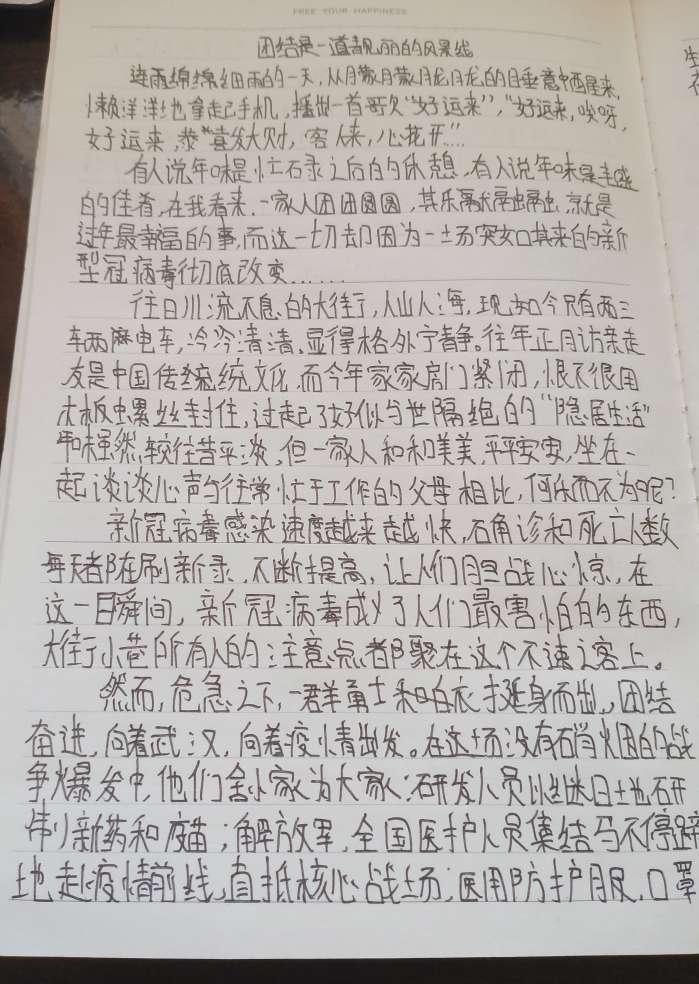 FREE YOUR HAPPINESS
团结是一道靓丽的风景线
连雨绵绵细雨的一天，从朦朦胧胧的睡意中醒来，
懒洋洋地拿起手机，播出一首歌《好运来》，“好运来，唉呀，
好运来，恭喜发大财，客人来，心花开…
有人说年味是忙碌之后的休憩，有人说年味是
的佳肴，在我看来，一家人团团圆圆，其乐融融，就是
过年最幸福的事，而这一切却因为一场突如其来的新
型冠病毒彻底改变……
往日川流不息的大街，人山人海，现如今只有两三
车两摩电车，冷冷清清，显得格外宁静。往年正月访亲走
友是中国传统文化，而今年家家房门紧闭，恨不得用
木板螺丝封住，过起了好似与世隔绝的“隐居生活”
虽然较往昔平淡，但一家人和和美美，平平安安，坐在一
起谈谈心声与往常忙于工作的父母相比，何乐而不为呢？
新冠病毒感染速度越来越快，确诊和死亡人数
每天都在刷新录，不断提高，让人们胆战心惊，在
这一瞬间，新冠病毒成了人们最害怕的东西，
大街小巷所有人的注意点都聚在这个不速之客上。
然而，危急之下，一群勇士和白衣挺身而出，团结
奋进，向着武汉，向着疫情出发。在这场没有硝烟的战
争爆发中，他们舍小家为大家；研发人员以继日地研
制新药和疫苗；解放军，全国医护人员集结马不停蹄
地赴疫情前线，直抵核心战场；医用防护服，口罩